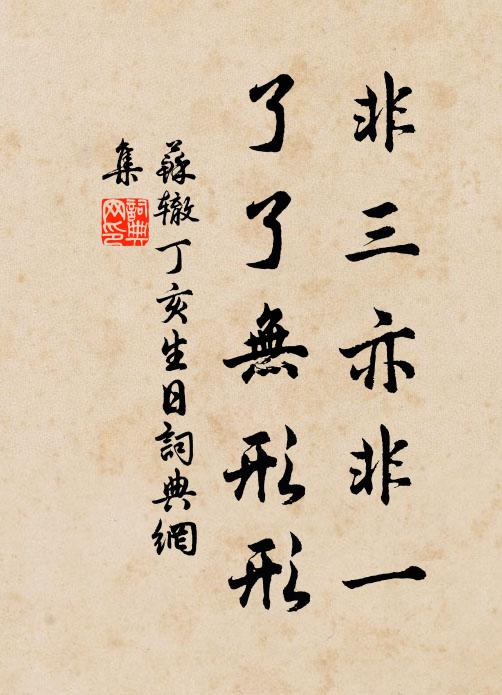 非三亦非一
了了無形形
蘇轍丁亥生日詞典網
集
詞典
网印